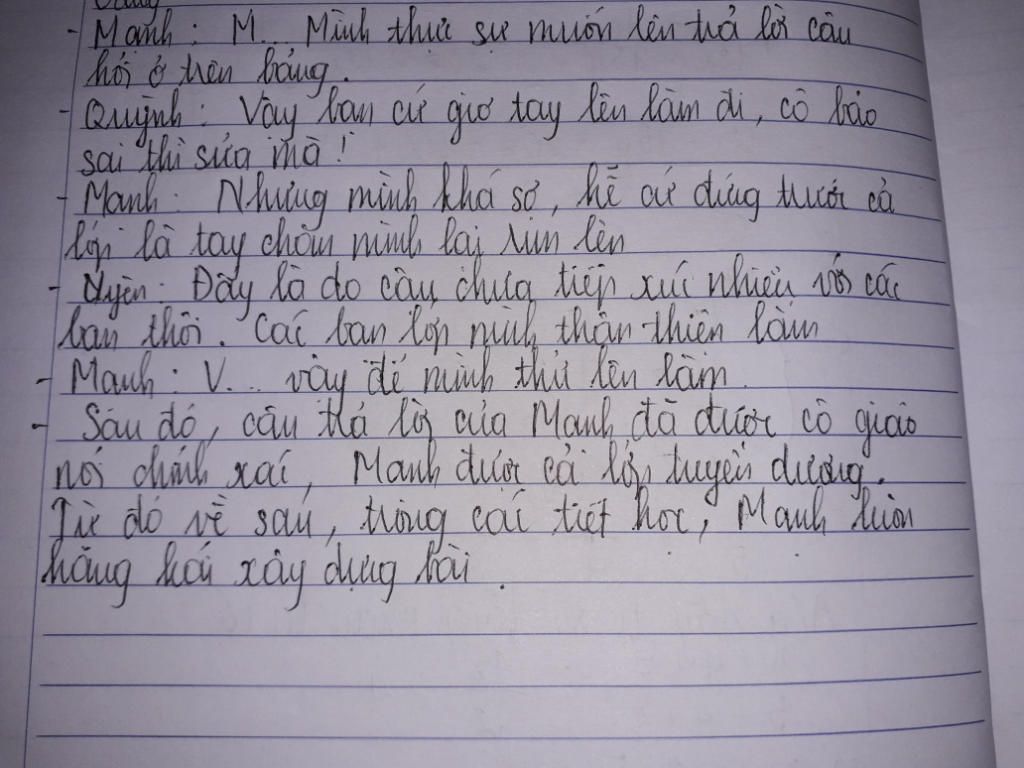 - Mạnh: M... Mình thực sự muốn lên trả lời câu
hỏi ở trên bảng.
- Quỳnh: Vậy bạn cứ giơ tay lên làm đi, cô bảo
sai thì sửa mà!
- Mạnh: Nhưng mình khá sợ, hễ cứ đứng trước cả
lớp là tay chân mình lại run lên
- Uyên: Đấy là do cậu chưa tiếp xúc nhiều với các
bạn thôi. Các bạn lớp mình thân thiện lắm
- Mạnh: V... vậy để mình thử lên làm.
- Sau đó, câu trả lời của Mạnh đã được cô giáo
nói chính xác, Mạnh được cả lớp tuyên dương.
Từ đó về sau, trong các tiết học, Mạnh luôn
hăng hái xây dựng bài.